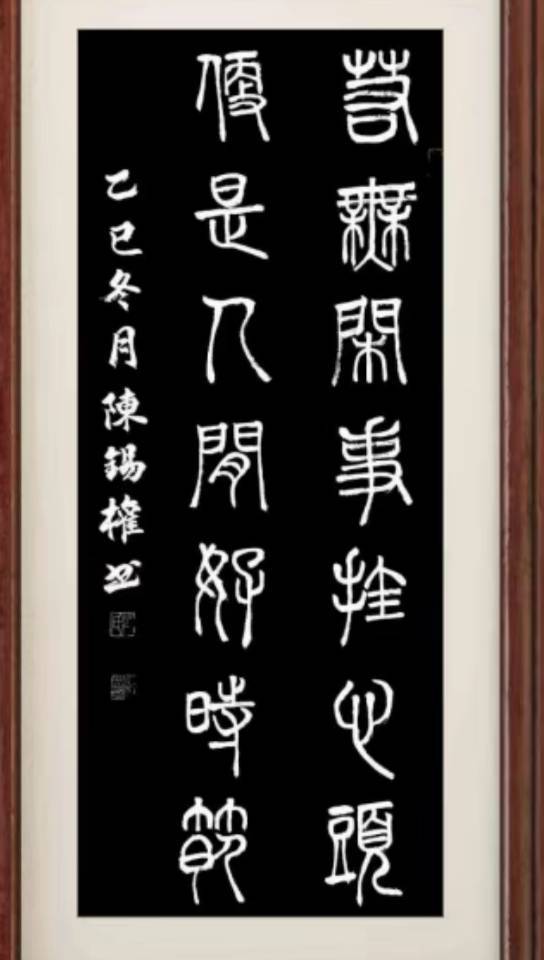 若無閑事挂心頭
便是人間好時節
乙巳冬月陳錫權书